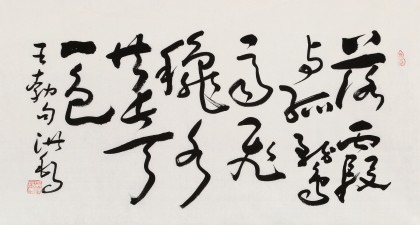 落霞
与孤鹜
齐飞
龝水
共长天
一色
王勃句 洪